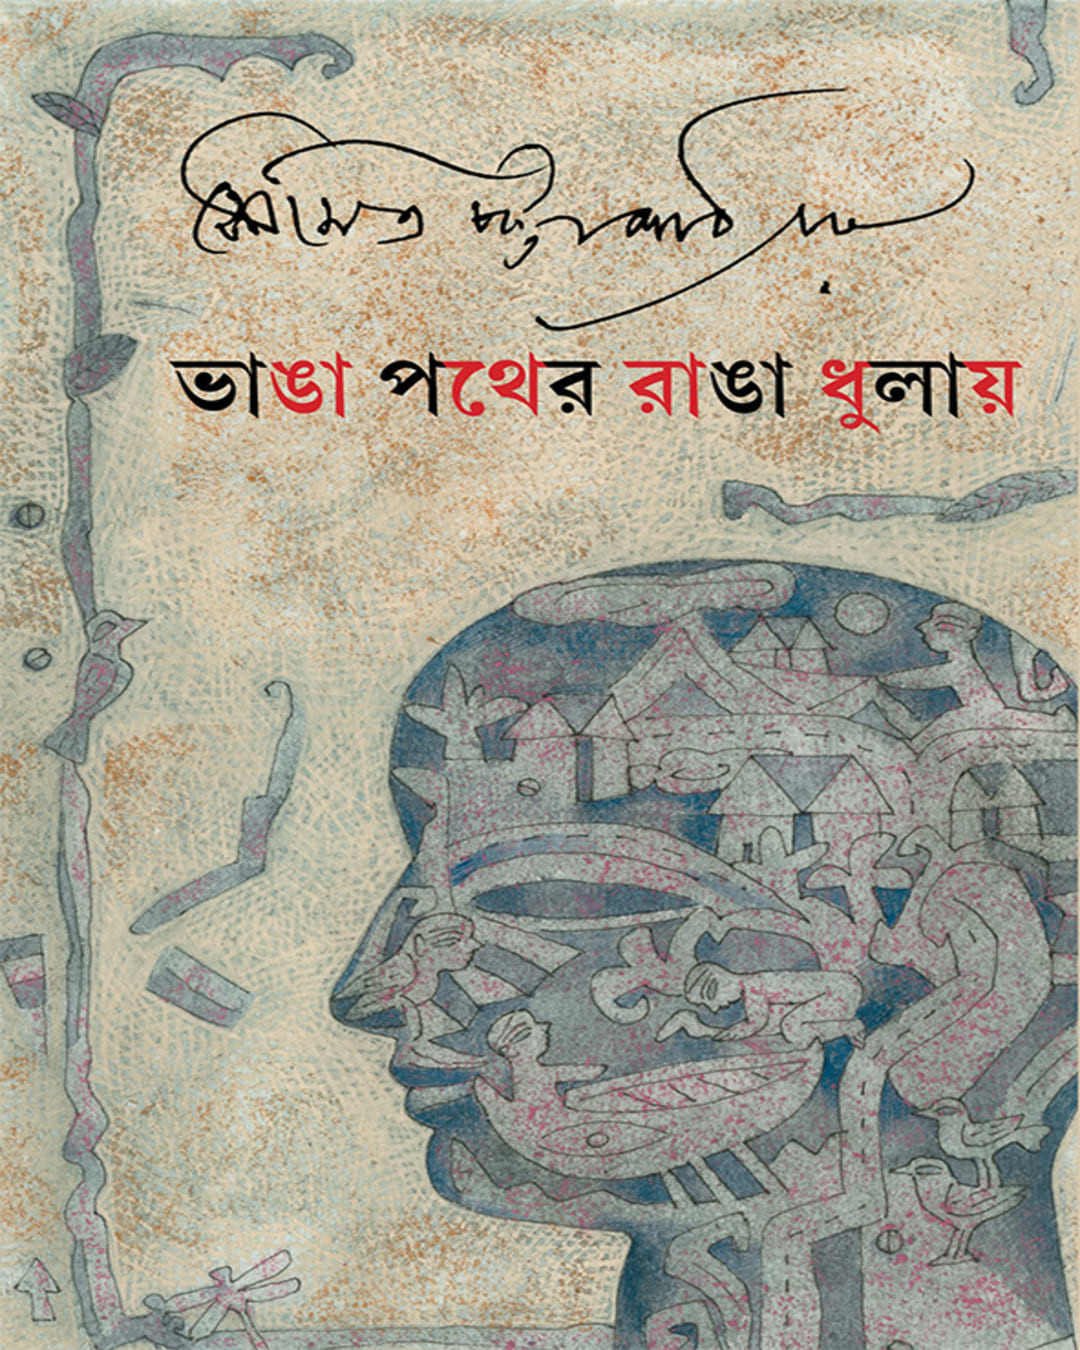 সৌমিত্র চট্টোপাধ্যায়
ভাঙা পথের রাঙা ধুলায়